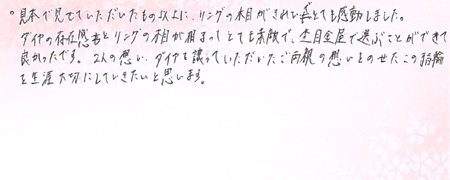 。見本で見せていただいたもの以上に、リングの木目がきれいでとても感動しました。
ダイヤの存在感もとリングの木目が相まってとても素敵で、杢目金屋で選ぶことができて
良かったです。2人の思い、ダイヤを譲っていただいたご両親の想いをのせたこの指輪
を生涯大切にしていきたいと思います。